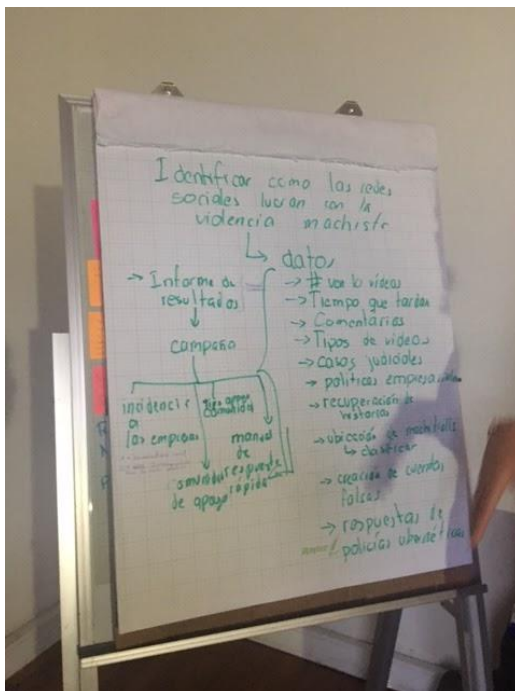 Identificar como las redes
sociales lucran con la
violencia machista
↳ datos
→ Informe de
resultados
↓
campaña
incidencir
a
las empresas
comunidad
manual
de
respuesta
rápida
de apoyo
→ # von lo vídeos
→ Tiempo que tardan
→ Comentarios
→ Tipos de videos
→ casos judiciales
→ políticas empresa
→ recuperación de
historias
→ ubicación de
↳ clasificar
→ creación de cuentas
falsas
→ respuestas de
policías